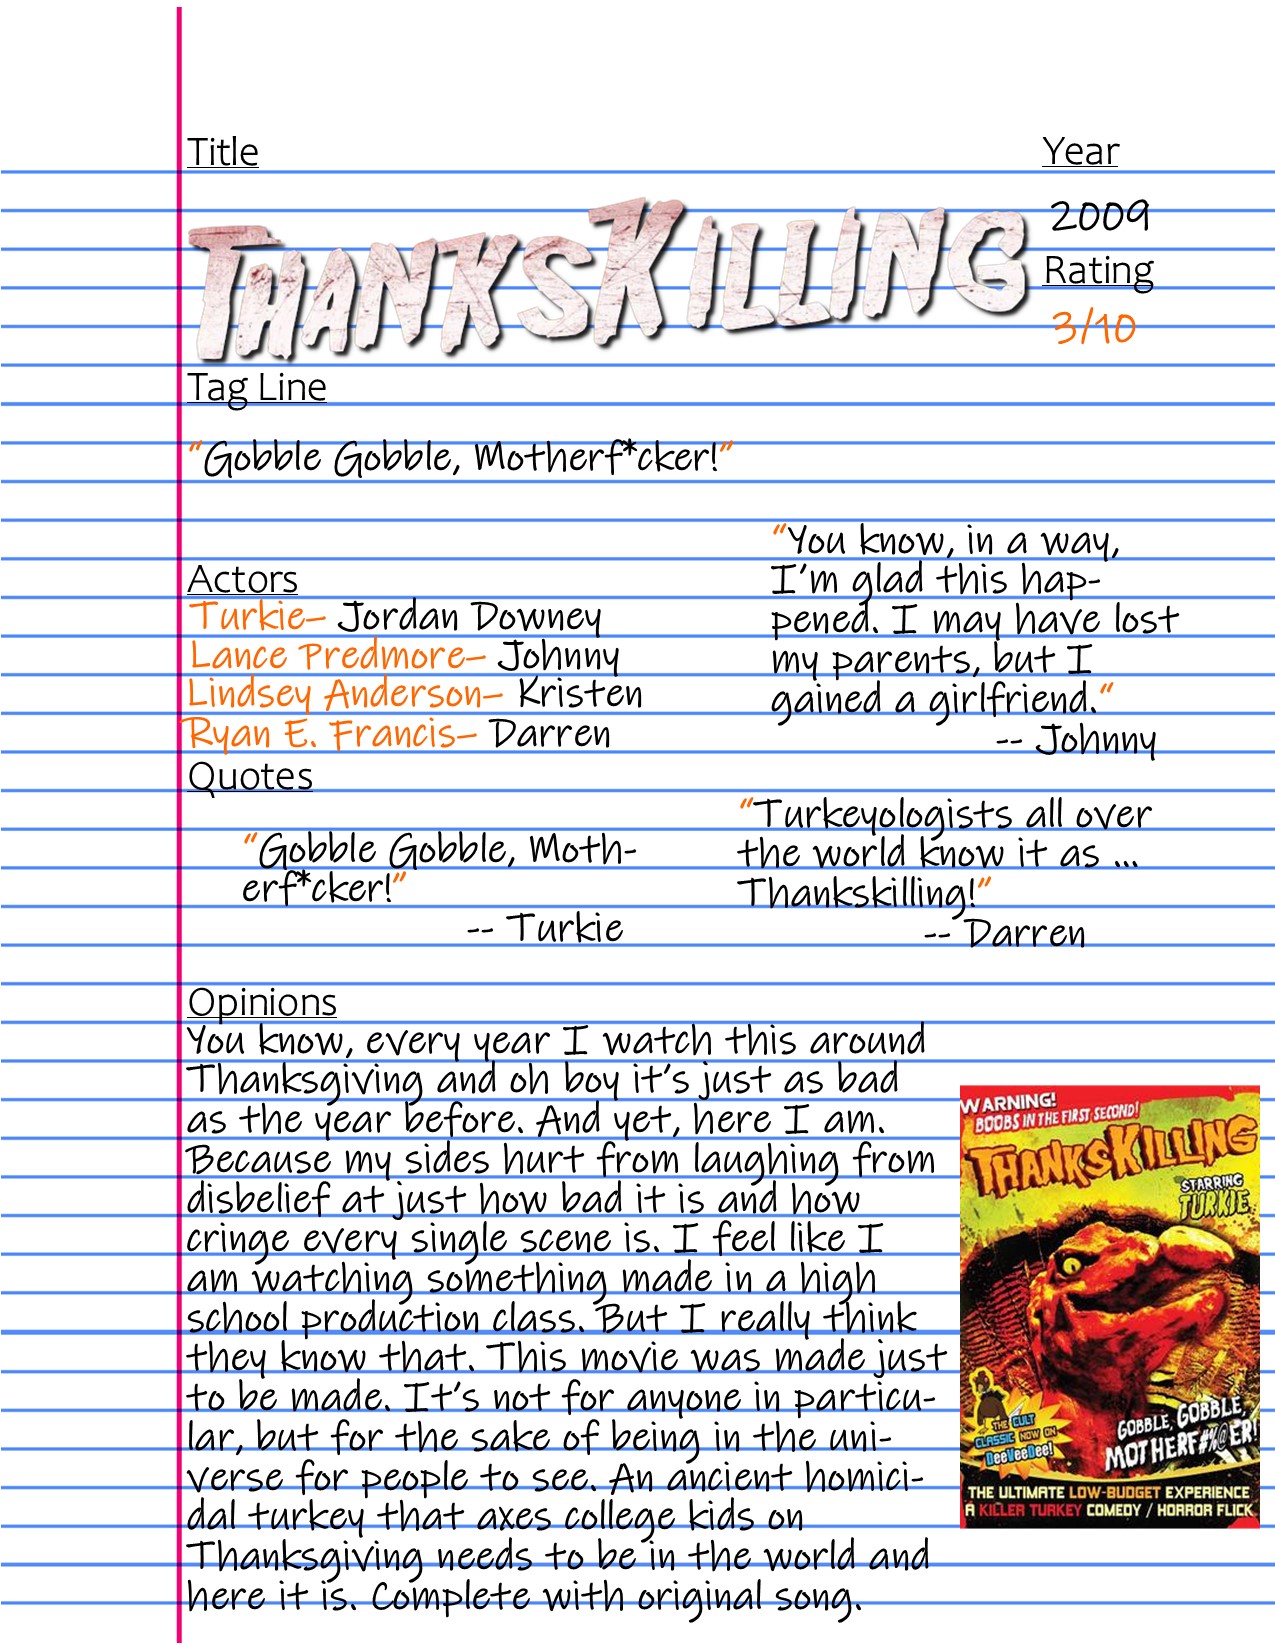 Title
Year
THANKSKILLING
2009
Rating
3/10
Tag Line
“Gobble Gobble, Motherf*cker!”
Actors
Turkie– Jordan Downey
Lance Predmore– Johnny
Lindsey Anderson– Kristen
Ryan E. Francis– Darren
“You know, in a way,
I’m glad this hap-
pened. I may have lost
my parents, but I
gained a girlfriend.“
-- Johnny
Quotes
“Gobble Gobble, Moth-
erf*cker!”
-- Turkie
“Turkeyologists all over
the world know it as ...
Thankskilling!”
-- Darren
Opinions
You know, every year I watch this around
Thanksgiving and oh boy it’s just as bad
as the year before. And yet, here I am.
Because my sides hurt from laughing from
disbelief at just how bad it is and how
cringe every single scene is. I feel like I
am watching something made in a high
school production class. But I really think
they know that. This movie was made just
to be made. It’s not for anyone in particu-
lar, but for the sake of being in the uni-
verse for people to see. An ancient homici-
dal turkey that axes college kids on
Thanksgiving needs to be in the world and
here it is. Complete with original song.
WARNING!
BOOBS IN THE FIRST SECOND!
THANKSKILLING
STARRING
TURKIE
THE CULT
CLASSIC NOW ON
DeeVeeDee!
GOBBLE, GOBBLE,
MOTHERF#%@ER!
THE ULTIMATE LOW-BUDGET EXPERIENCE
A KILLER TURKEY COMEDY / HORROR FLICK